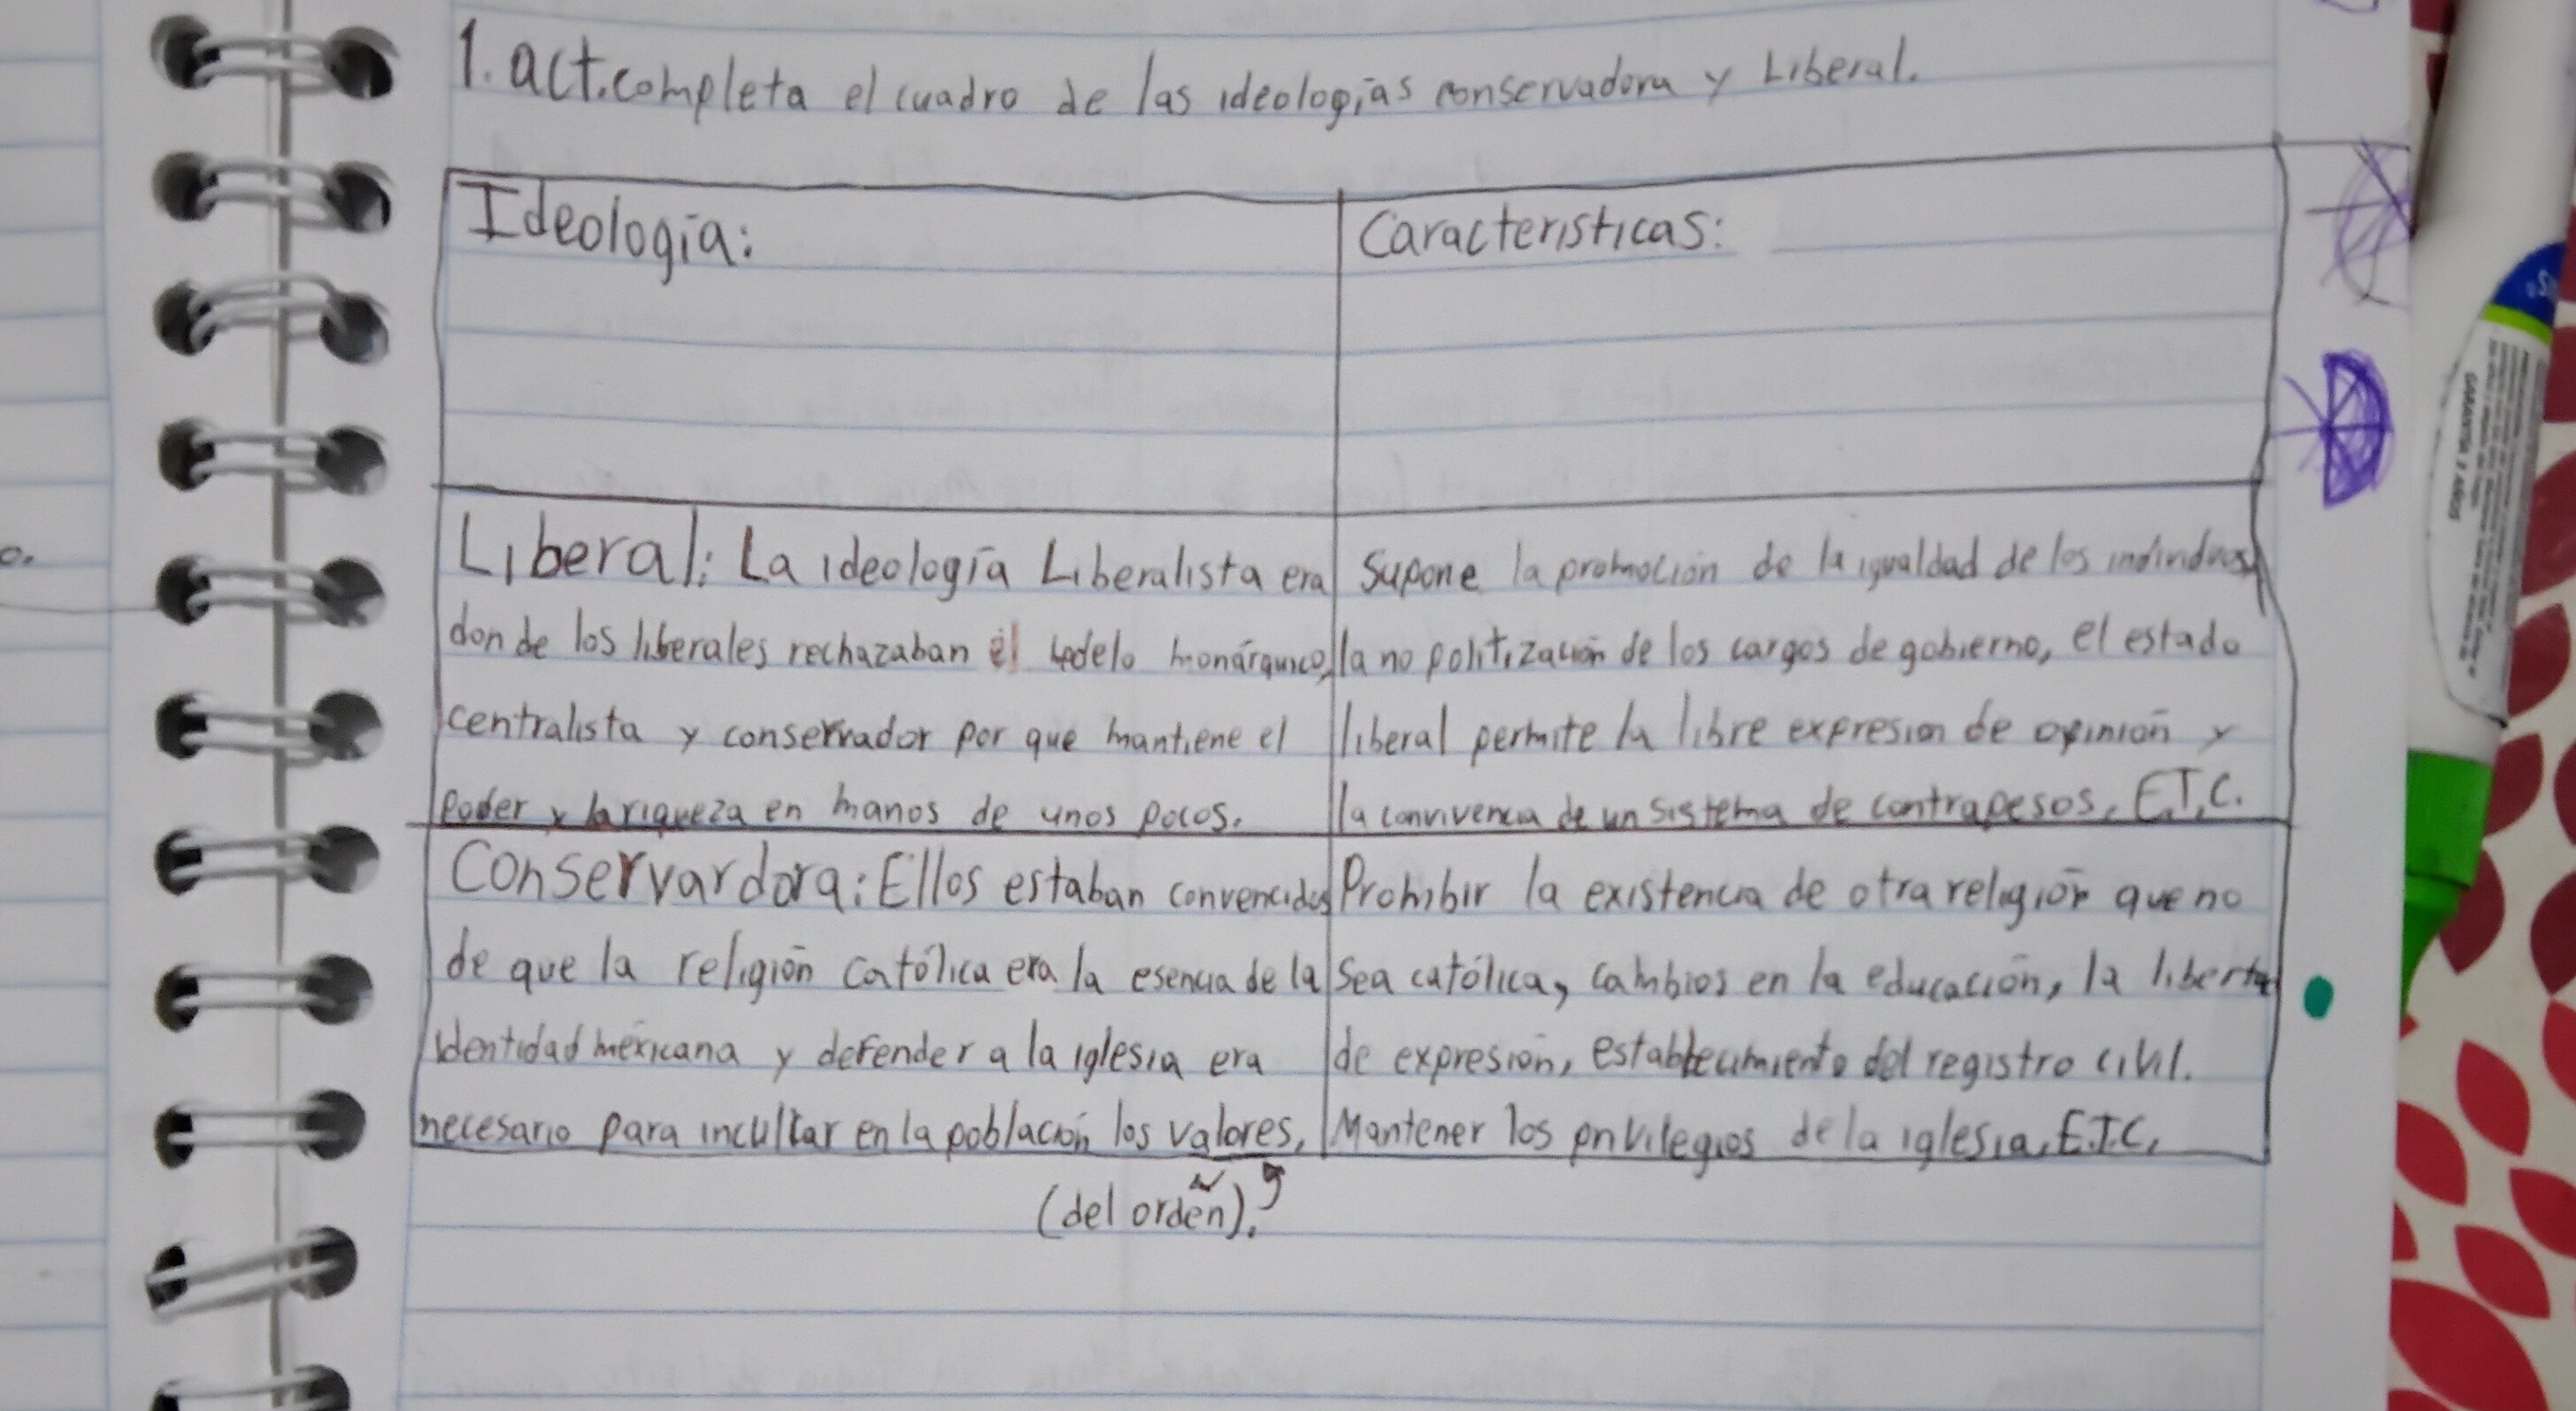 1. act. completa el cuadro de las ideologías conservadora y Liberal.
Ideología:
Caracteristicas:
Liberal: La ideología Liberalista era
donde los liberales rechazaban el modelo monárquico,
centralista y conservador por que mantiene el
poder y la riqueza en manos de unos pocos.
Supone la promoción de la igualdad de los individuos,
la no politización de los cargos de gobierno, el estado
liberal permite la libre expresion de opinión y
la convivencia de un sistema de contrapesos, E.T.C.
Conservardora: Ellos estaban convencidos
de que la religión católica era la esencia de la
identidad mexicana y defender a la iglesia era
necesario para incultar en la población los valores,
(del ordeñ).
Prohibir la existencia de otra religión que no
Sea católica, cambios en la educación, la libertad
de expresión, establecimiento del registro civil.
Mantener los privilegios de la iglesia, E.T.C.
GARANTÍA 2 AÑOS